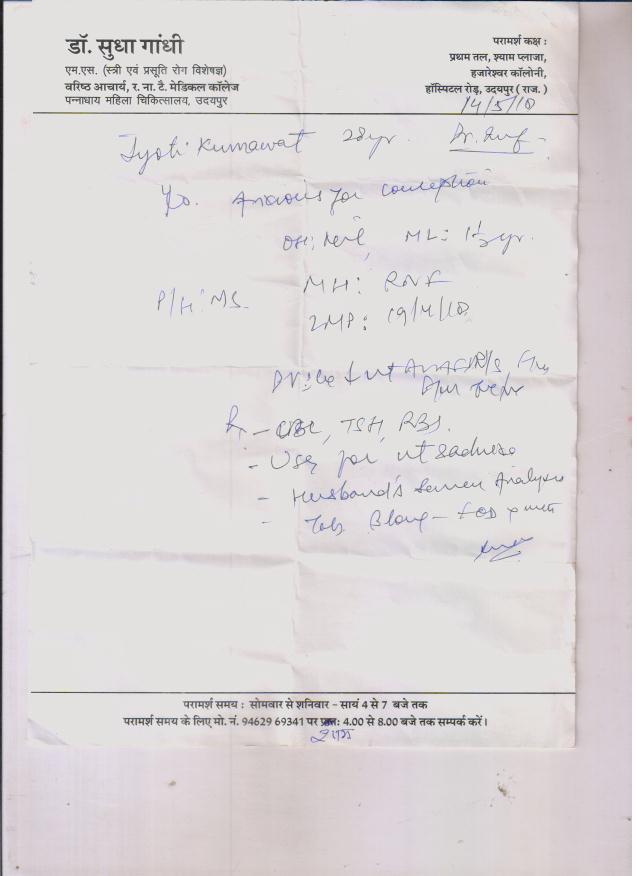 डॉ. सुधा गांधी
एम.एस. (स्त्री एवं प्रसूति रोग विशेषज्ञ)
वरिष्ठ आचार्य, र. ना. टै. मेडिकल कॉलेज
पन्नाधाय महिला चिकित्सालय, उदयपुर
परामर्श कक्ष :
प्रथम तल, श्याम प्लाजा,
हजारेश्वर कॉलोनी,
हॉस्पिटल रोड़, उदयपुर ( राज. )
14/5/10
Jyoti Kumawat 28yr.
Anxious for conception
OH: Nil, ML: 1½ yr.
MH: RNF
P/H: NS
LMP: 19/4/10
- CBC, TSH, RBS.
- USG for ut & adnexa
- Husband's Semen Analysis
-
परामर्श समय : सोमवार से शनिवार - सायं 4 से 7 बजे तक
परामर्श समय के लिए मो. नं. 94629 69341 पर 4.00 से 8.00 बजे तक सम्पर्क करें।
शाम